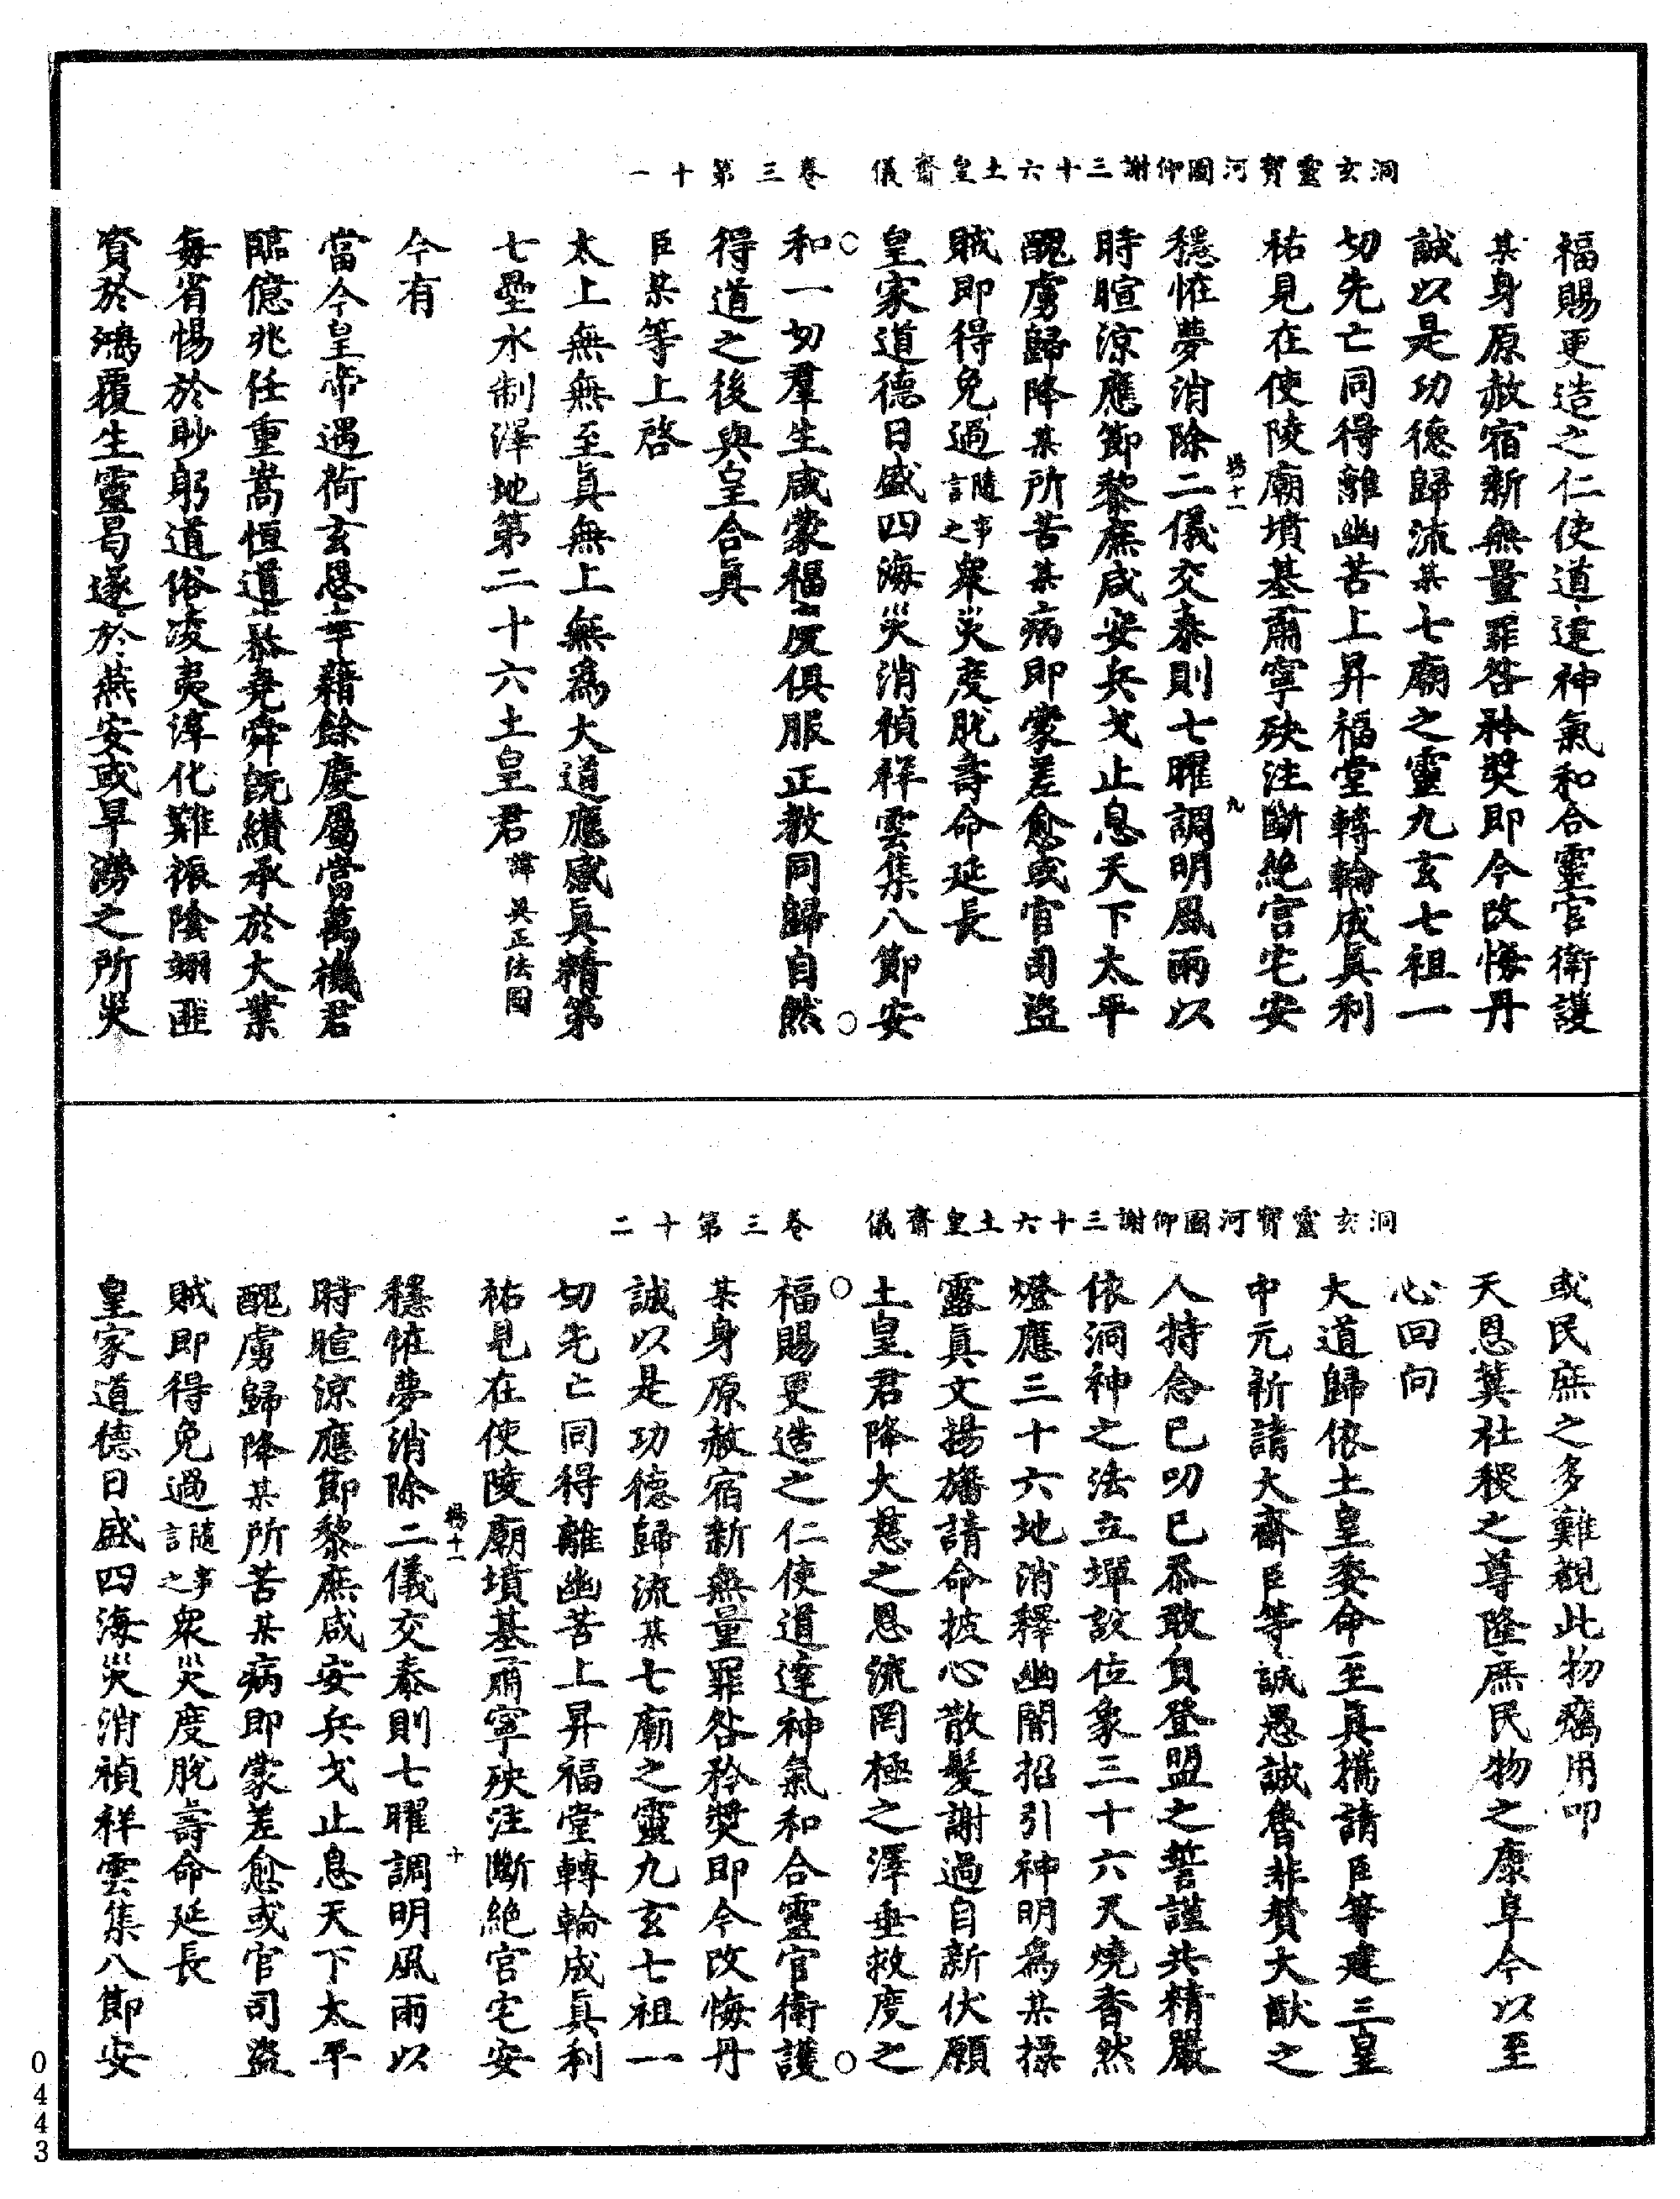 洞玄靈寶河圖仰謝三十六土皇齋儀　卷三第十一
福賜更造之仁使道達神氣和合靈官衛護
某身原赦宿新無量罪咎矜奬即今改悔丹
誠以是功德歸流某七廟之靈九玄七祖一
切先亡同得離幽苦上昇福堂轉輪成真利
祐見在使陵廟墳基肅寧殃注斷絕宮宅安
穩恠夢消除二儀交泰則七曜調明風雨以
時暄涼應節黎庶咸安兵戈止息天下太平
醜虜歸降某所苦某病即蒙差愈或官司盜
賊即得免過隨事言之衆災度脫壽命延長
皇家道德日盛四海災消禎祥雲集八節安
和一切羣生咸蒙福度俱服正教同歸自然
得道之後與皇合真
臣某等上啓
太上無無至真無上無為大道應感真精第
七壘水制澤地第二十六土皇君諱吳正法圖
今有
當今皇帝遇荷玄恩幸藉餘慶屬當萬機君
臨億兆任重嵩恒道恭堯舜旣纘承於大業
每省惕於眇躬道俗凌夷淳化難振陰翊匪
資於鴻覆生靈曷遂於燕安或旱澇之所災
洞玄靈寶河圖仰謝三十六土皇齋儀　卷三第十二
或民庶之多難觀此物癘用叩
天恩冀社稷之尊隆庶民物之康阜今以至
心回向
大道歸依土皇委命至真攜請臣等建三皇
中元祈請大齋臣等誠愚誠魯非贊大猷之
人特念已叨已忝敢負登盟之誓謹共精嚴
依洞神之法立墠設位象三十六天燒香然
燈應三十六地消釋幽闇招引神明為某操
露真文揚旛請命披心散髮謝過自新伏願
土皇君降大慈之恩流罔極之澤垂救度之
福賜更造之仁使道達神氣和合靈官衛護
某身原赦宿新無量罪咎矜奬即今改悔丹
誠以是功德歸流某七廟之靈九玄七祖一
切先亡同得離幽苦上昇福堂轉輪成真利
祐見在使陵廟墳基肅寧殃注斷絕宮宅安
穩恠夢消除二儀交泰則七曜調明風雨以
時暄涼應節黎庶咸安兵戈止息天下太平
醜虜歸降某所苦某病即蒙差愈或官司盜
賊即得免過隨事言之衆災度脫壽命延長
皇家道德日盛四海災消禎祥雲集八節安
0443